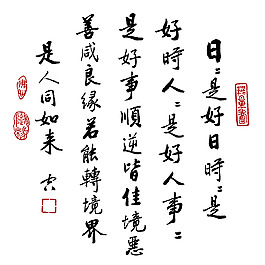 日〻是好日時〻是
好時人〻是好人事〻
是好事順逆皆佳境惡
善咸良緣若能轉境界
是人同如来